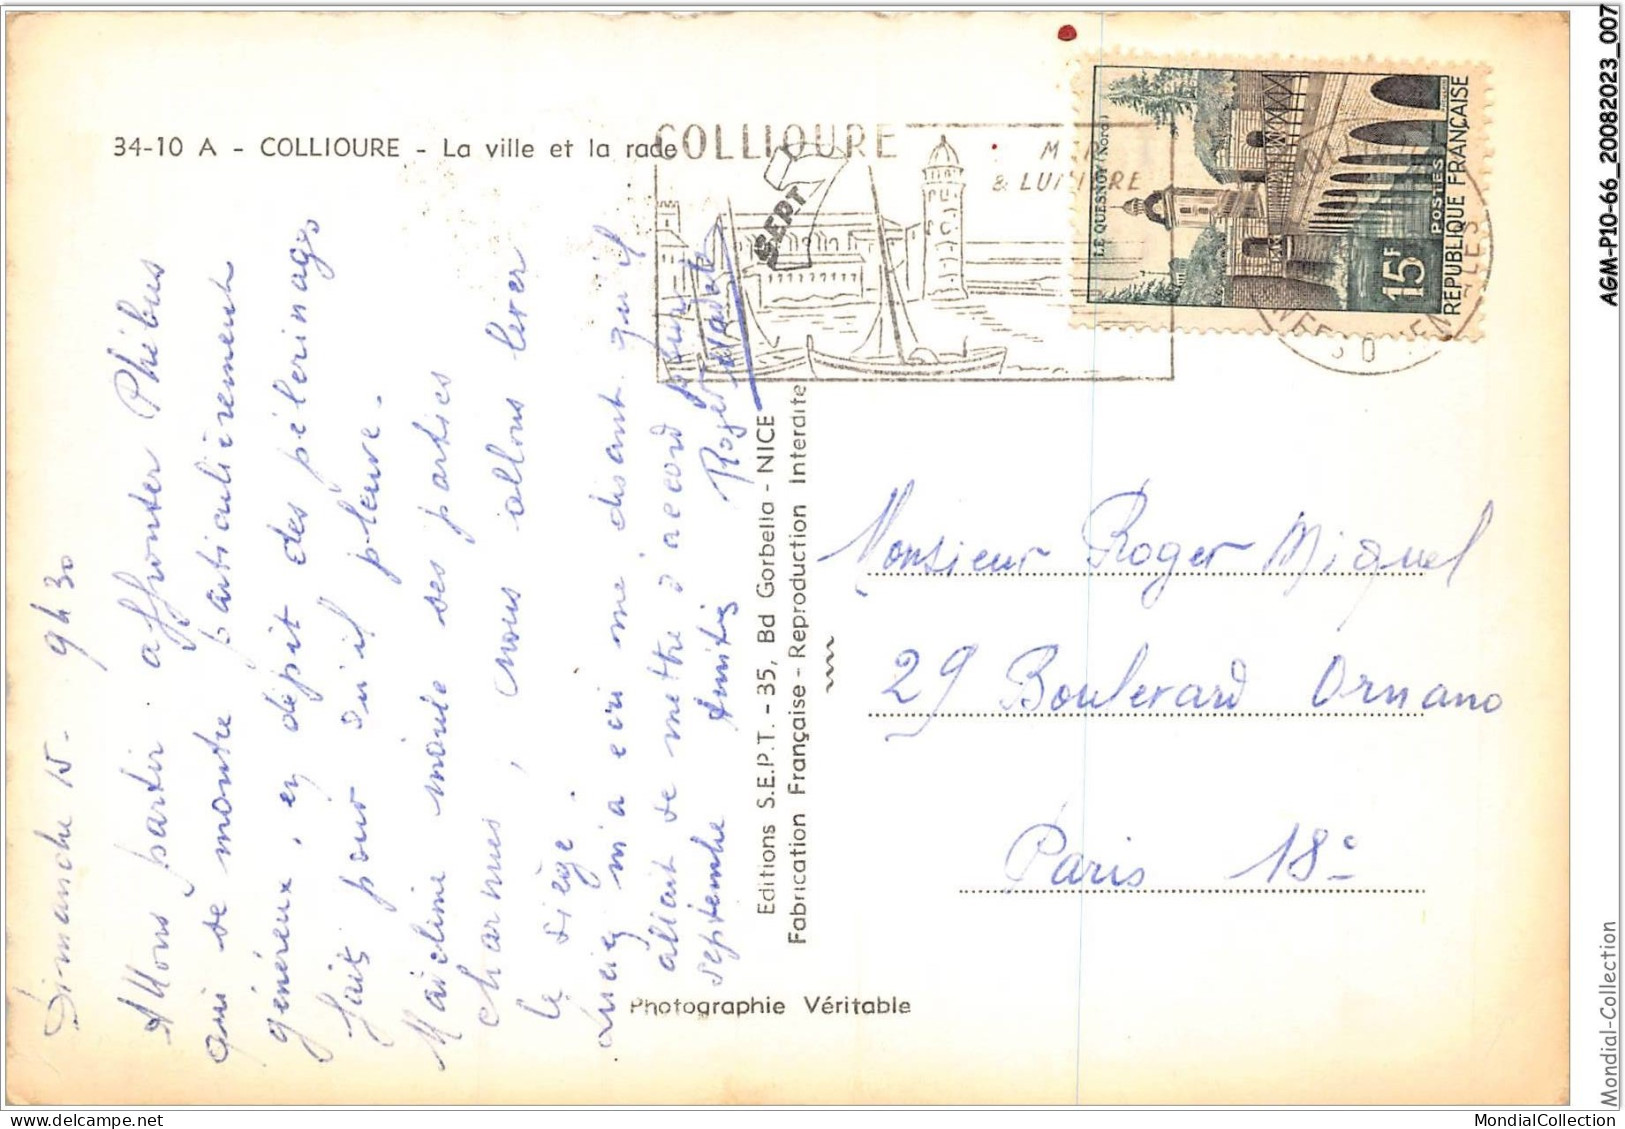 34-10 A - COLLIOURE - La ville et la rade
COLLIOURE
& LUMIERE
SEPT
LE QUESNOY (Nord)
15F
POSTES
REPUBLIQUE FRANÇAISE
Dimanche 15 - 9h30
Allons partir affronter Phébus
qui se montre particulièrement
généreux, en dépit des pélerinages
faits pour qu'il pleuve.
charmes, nous allons lever
le siège.
Lucien m'a écri me disant qu'il
allait se mettre d'accord pour
septembre Amitiés Roger
Editions S.E.P.T. - 35, Bd Gorbella - NICE
Fabrication Française - Reproduction Interdite
Photographie Véritable
Monsieur Roger Miquel
29 Boulevard Ornano
Paris 18e
AGM-P10-66_20082023_007
Mondial-Collection
delcampe.net
MondialCollection